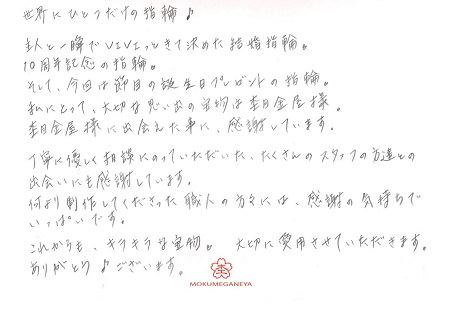 世界にひとつだけの指輪♪
主人と一瞬でVIVIっときて決めた結婚指輪。
10周年記念の指輪。
そして、今回は節目の誕生日プレゼントの指輪。
私にとって、大切な思い出の宝物は杢目金屋様。
杢目金屋様に出会えた事に、感謝しています。
丁寧に優しく相談にのっていただいた、たくさんのスタッフの方達との
出会いにも感謝しています。
何より制作してくださった職人の方々には、感謝の気持ちで
いっぱいです。
これからも、キラキラな宝物。 大切に愛用させていただきます。
ありがとう♪ございます。
MOKUMEGANEYA